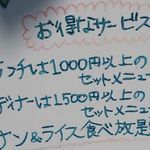 お得なサービス
ランチは1000円以上の
セットメニュー
ディナーは1500円以上の
セットメニュ
ナン&ライス食べ放題